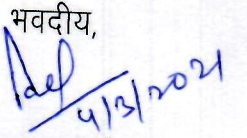 भवदीय,
4/3/2021